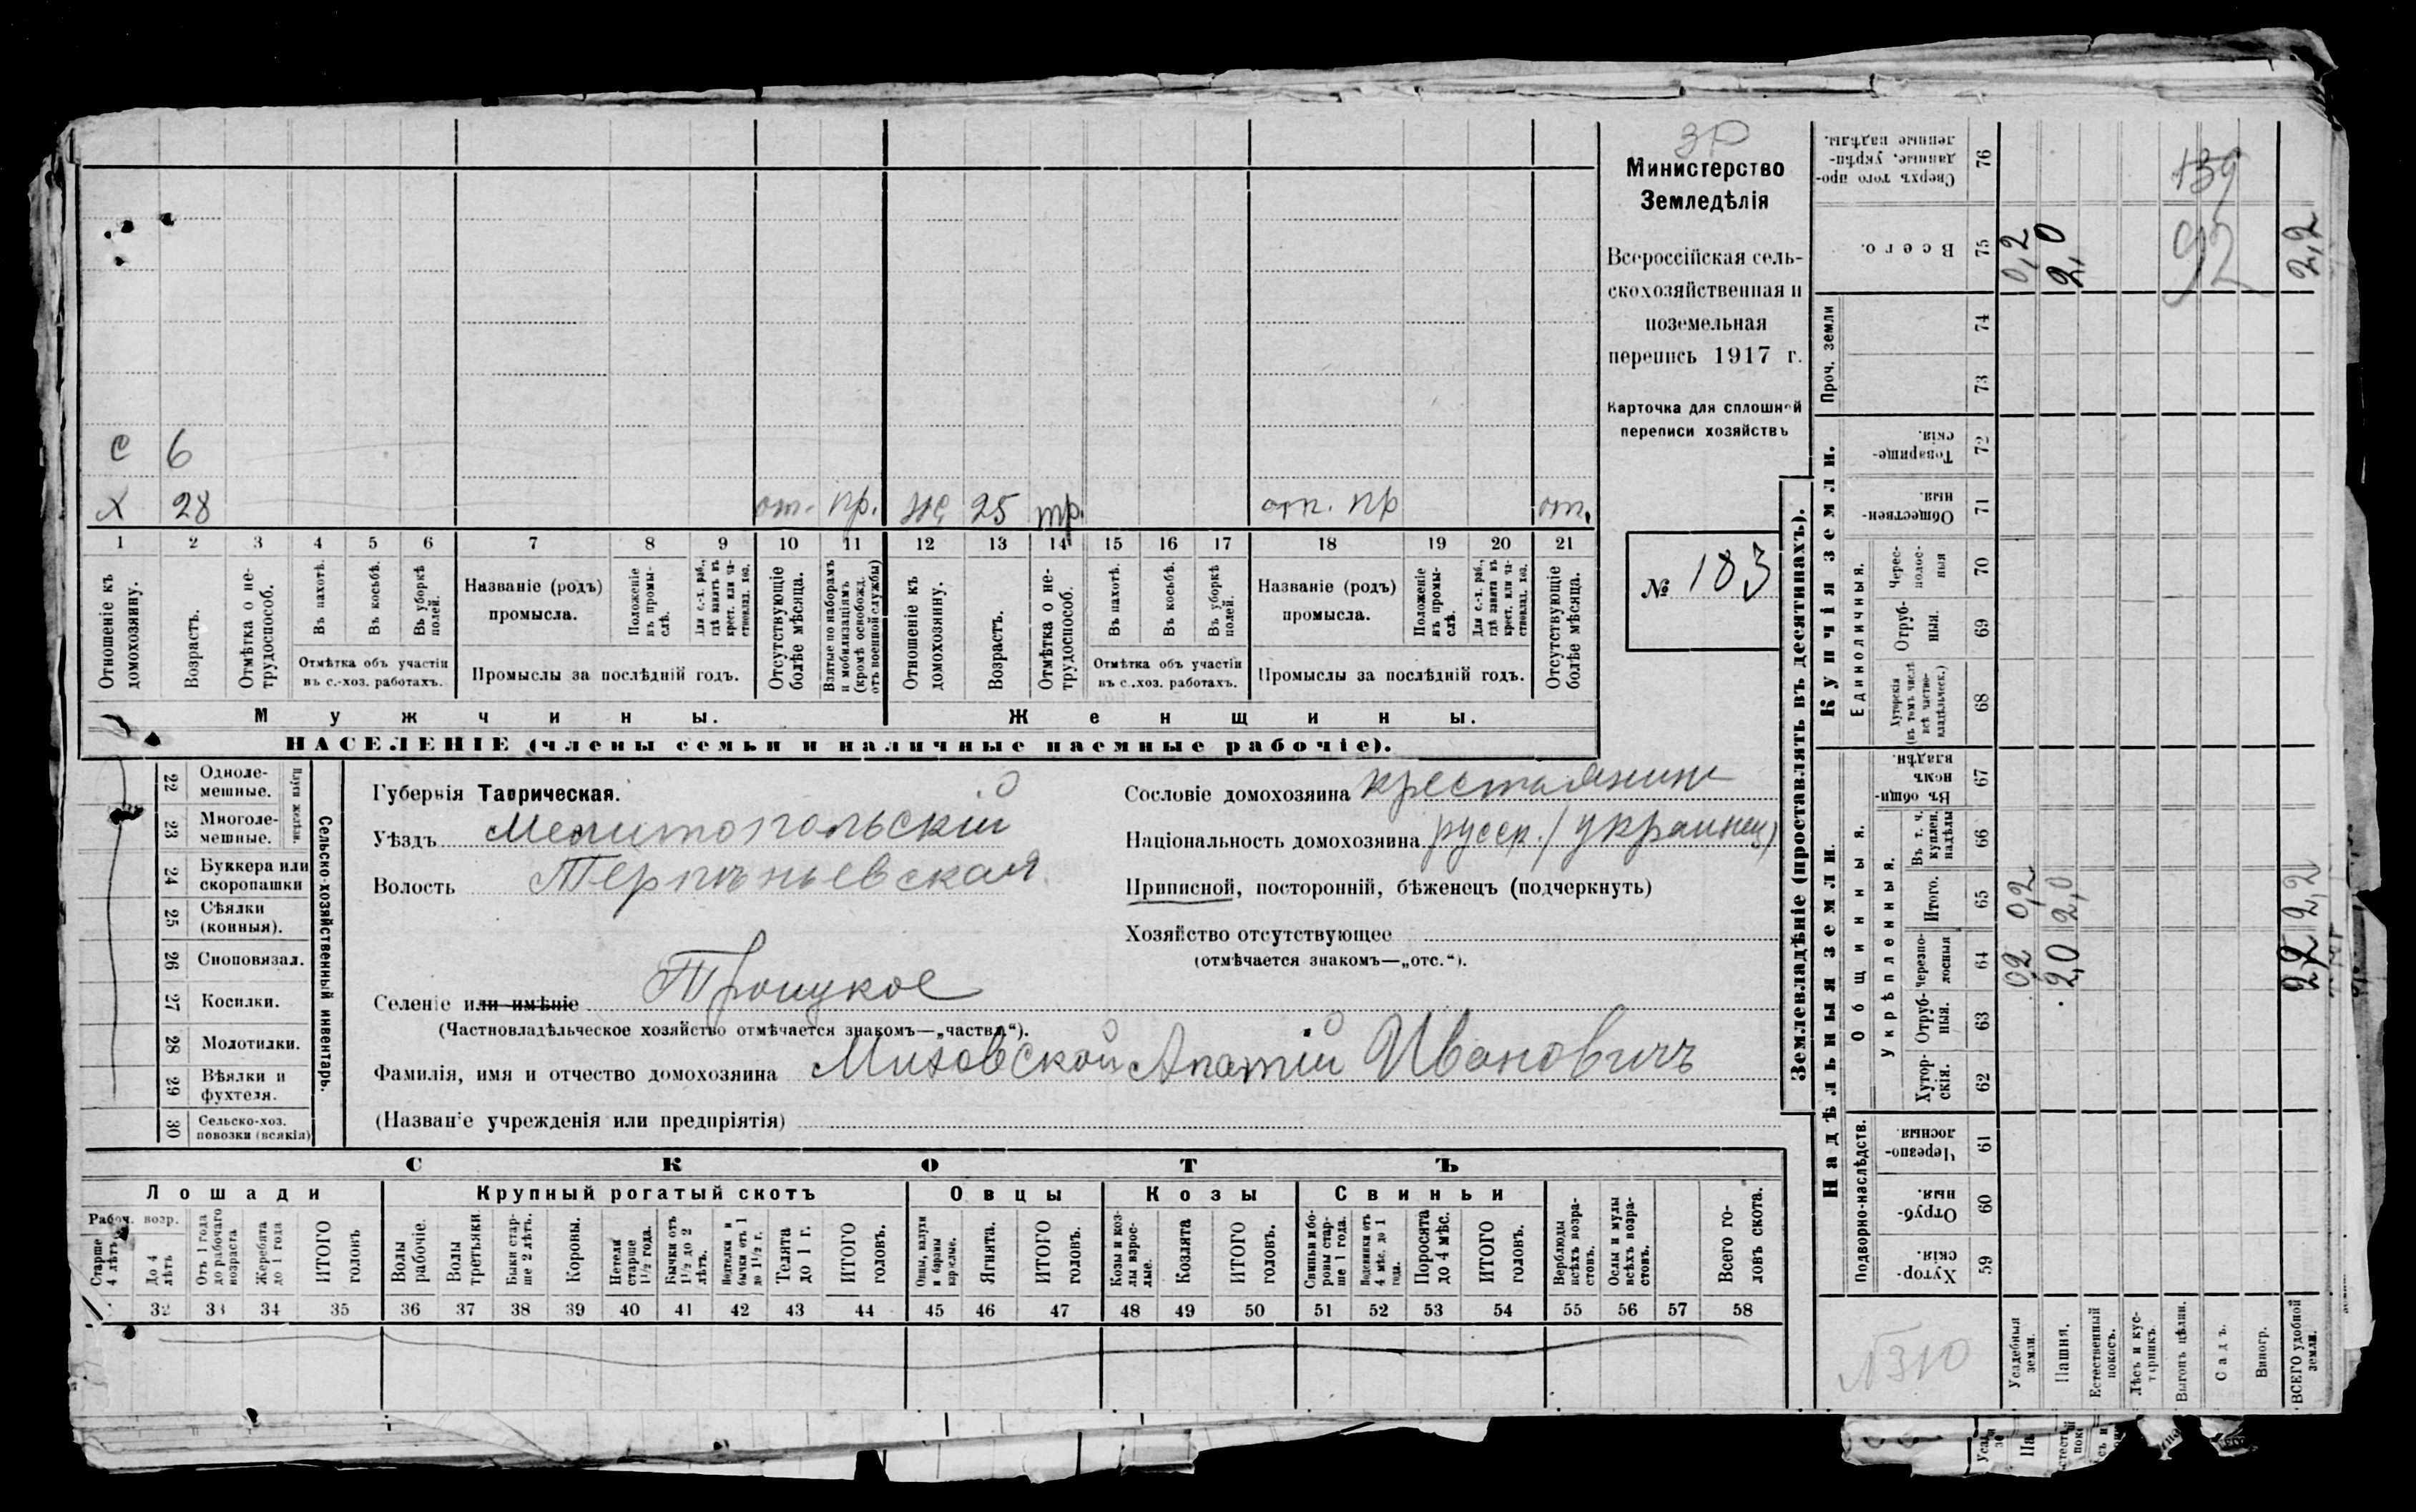 С 6
Х 28 от. пр. же 25 тр. отп. пр от.
1 2 3 4 5 6 7 8 9 10 11 12 13 14 15 16 17 18 19 20 21
Отношеніе къ домохозяину.
Возрастъ.
Отмѣтка о не-трудоспособ.
Въ пахотѣ.
Въ косьбѣ.
Въ уборкѣ полей.
Отмѣтка объ участіи
въ с.-хоз. работахъ.
Названіе (родъ)
промысла.
Положеніе въ промы-слѣ.
Для с.-х. раб., гдѣ занятъ въ крест. или ча-стновлад. хоз.
Промыслы за послѣдній годъ.
Отсутствующіе болѣе мѣсяца.
Взятые по наборамъ и мобилизаціямъ (кромѣ освобожд. отъ военной службы)
Отношеніе къ домохозяину.
Возрастъ.
Отмѣтка о не-трудоспособ.
Въ пахотѣ.
Въ косьбѣ.
Въ уборкѣ полей.
Отмѣтка объ участіи
въ с.хоз. работахъ.
Названіе (родъ)
промысла.
Положеніе въ промы-слѣ.
Для с.-х. раб., гдѣ занятъ въ крест. или ча-стновлад. хоз.
Промыслы за послѣдній годъ.
Отсутствующіе болѣе мѣсяца.
Мужчины. Женщины.
НАСЕЛЕНІЕ (члены семьи и наличные наемные рабочіе).
Министерство
Земледѣлія
Всероссійская сель-
скохозяйственная и
поземельная
перепись 1917 г.
Карточка для сплошной
переписи хозяйствъ
№ 183
22 Одноле-мешные.
23 Многоле-мешные.
Плуги желѣзн.
24 Буккера или скоропашки
25 Сѣялки (конныя).
26 Сноповязал.
27 Косилки.
28 Молотилки.
29 Вѣялки и фухтеля.
30 Сельско-хоз. повозки (всякія)
Сельско-хозяйственный инвентарь.
Губернія Таврическая.
Уѣздъ Мелитопольскій
Волость Терпѣньевская
Селеніе или имѣніе Троицкое
(Частновладѣльческое хозяйство отмѣчается знакомъ—„частвл“).
Фамилія, имя и отчество домохозяина Миховской Апатій Ивановичъ
(Названіе учрежденія или предпріятія)
Сословіе домохозяина крестьянин
Національность домохозяина русск. (украинец)
Приписной, посторонній, бѣженецъ (подчеркнуть)
Хозяйство отсутствующее
(отмѣчается знакомъ—„отс.“).
СКОТЪ
Лошади Крупный рогатый скотъ Овцы Козы Свиньи
Рабоч. возр.
Старше 4 лѣтъ
До 4 лѣтъ
Отъ 1 года до рабочаго возраста
Жеребята до 1 года
ИТОГО головъ
Волы рабочіе.
Волы третьяки.
Быки стар-ше 2 лѣтъ.
Коровы.
Нетели старше 1½ года.
Бычки отъ 1½ до 2 лѣтъ.
Телки и бычки отъ 1 до 1½ г.
Телята до 1 г.
ИТОГО головъ.
Овцы, валухи и бараны взрослые.
Ягнята.
ИТОГО головъ.
Козы и коз-лы взрос-лые.
Козлята
ИТОГО головъ.
Свиньи и бо-ровы стар-ше 1 года.
Подсвинки отъ 4 мѣс. до 1 года.
Поросята до 4 мѣс.
ИТОГО головъ.
Верблюды всѣхъ возра-стовъ.
Ослы и мулы всѣхъ возра-стовъ.
Всего го-ловъ скота.
32 33 34 35 36 37 38 39 40 41 42 43 44 45 46 47 48 49 50 51 52 53 54 55 56 57 58
Землевладѣніе (проставлять въ десятинахъ).
Купчія земли.
Надѣльныя земли.
Проч. земли
Единоличныя.
Общинныя.
Укрѣпленныя.
Подворно-наслѣдств.
Сверхъ того про-данные, укрѣп-ленные надѣлы. 76
Всего. 75 0,2 2,0 2,2
139
92
74
73
Товарище-скія. 72
Обществен-ныя. 71
Черес-полос-ныя 70
Отруб-ныя. 69
Хуторскія (въ томъ числѣ всѣ частно-владѣльческ.) 68
Въ общин-номъ владѣн. 67
Въ т. ч. куплен. надѣлы 66
Итого. 65 0,2 2,0 2,2
Черезпо-лосныя 64 02 2,0 22
Отруб-ныя. 63
Хутор-скія. 62
Черезпо-лосныя. 61
Отруб-ныя. 60
Хутор-скія. 59
Усадебныя земли.
Пашня.
Естественный покосъ.
Лѣсъ и кус-тарникъ.
Выгонъ цѣлин.
Садъ.
Виногр.
ВСЕГО удобной земли.